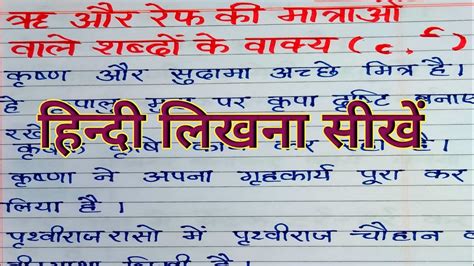 ऋ और रेफ की मात्राओं
वाले शब्दों के वाक्य (
कृष्ण और सुदामा अच्छे मित्र है।
पर कृपा दृष्टि बनाए
हिन्दी लिखना सीखें
कृष्णा ने अपना गृहकार्य पूरा कर
लिया है ।
पृथ्वीराज रासो में पृथ्वीराज चौहान